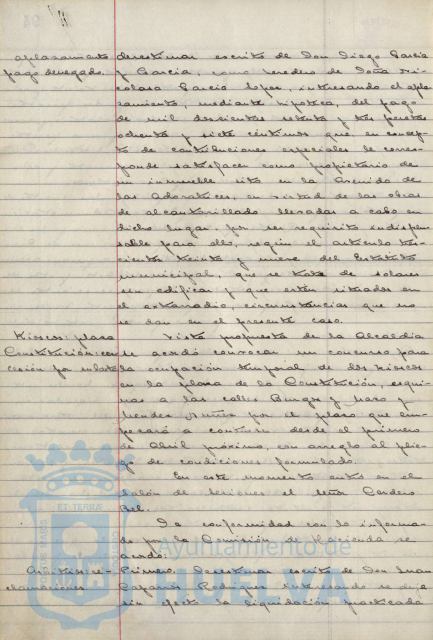 aplazamiento
pago denegado.
desestimar escrito de Don Diego García
y García, como heredero de Doña Ni-
colasa García López, interesando el apla-
zamiento, mediante hipoteca, del pago
de mil doscientas setenta y tres pesetas
ochenta y siete céntimos que, en concep-
to de contribuciones especiales le corres-
ponde satisfacer como propietario de
un inmueble sito en la Avenida de
las Adoratrices, en virtud de las obras
de alcantarillado llevadas a cabo en
dicho lugar, por ser requisito indispen-
sable para ello, según el artículo tres-
cientos treinta y nueve del Estatuto
municipal, que se trate de solares
sin edificar y que estén situados en
el extrarradio, circunstancias que no
se dan en el presente caso.
Kioscos plaza
Constitución: con-
cesión por subasta
Vista propuesta de la Alcaldía
se acordó convocar un concurso para
la ocupación temporal de dos kioscos
en la plaza de la Constitución, esqui-
nas a las calles Burgos y Mazo y
Méndez Núñez por el plazo que em-
pezará a contarse desde el primero
de Abril próximo, con arreglo al plie-
go de condiciones formulado.
En este momento entra en el
salón de sesiones el señor Cordero
Bel.
De conformidad con lo informa-
do por la Comisión de Hacienda se
acordó:
Arbitrios: re-
clamaciones.
Primero. Desestimar escrito de Don Juan
Rodríguez interesando se deje
sin efecto la liquidación practicada
ET TERRAE
Ayuntamiento de
HUELVA